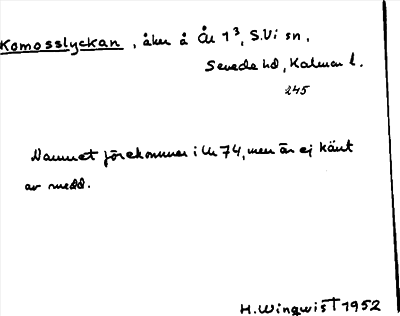 Komosslyckan, åker å År 1³, S.Vi sn,
Sevede hd, Kalmar l.
245
Namnet förekommer i LU 74, men är ej känt
av medd.
H. Wingwist 1952